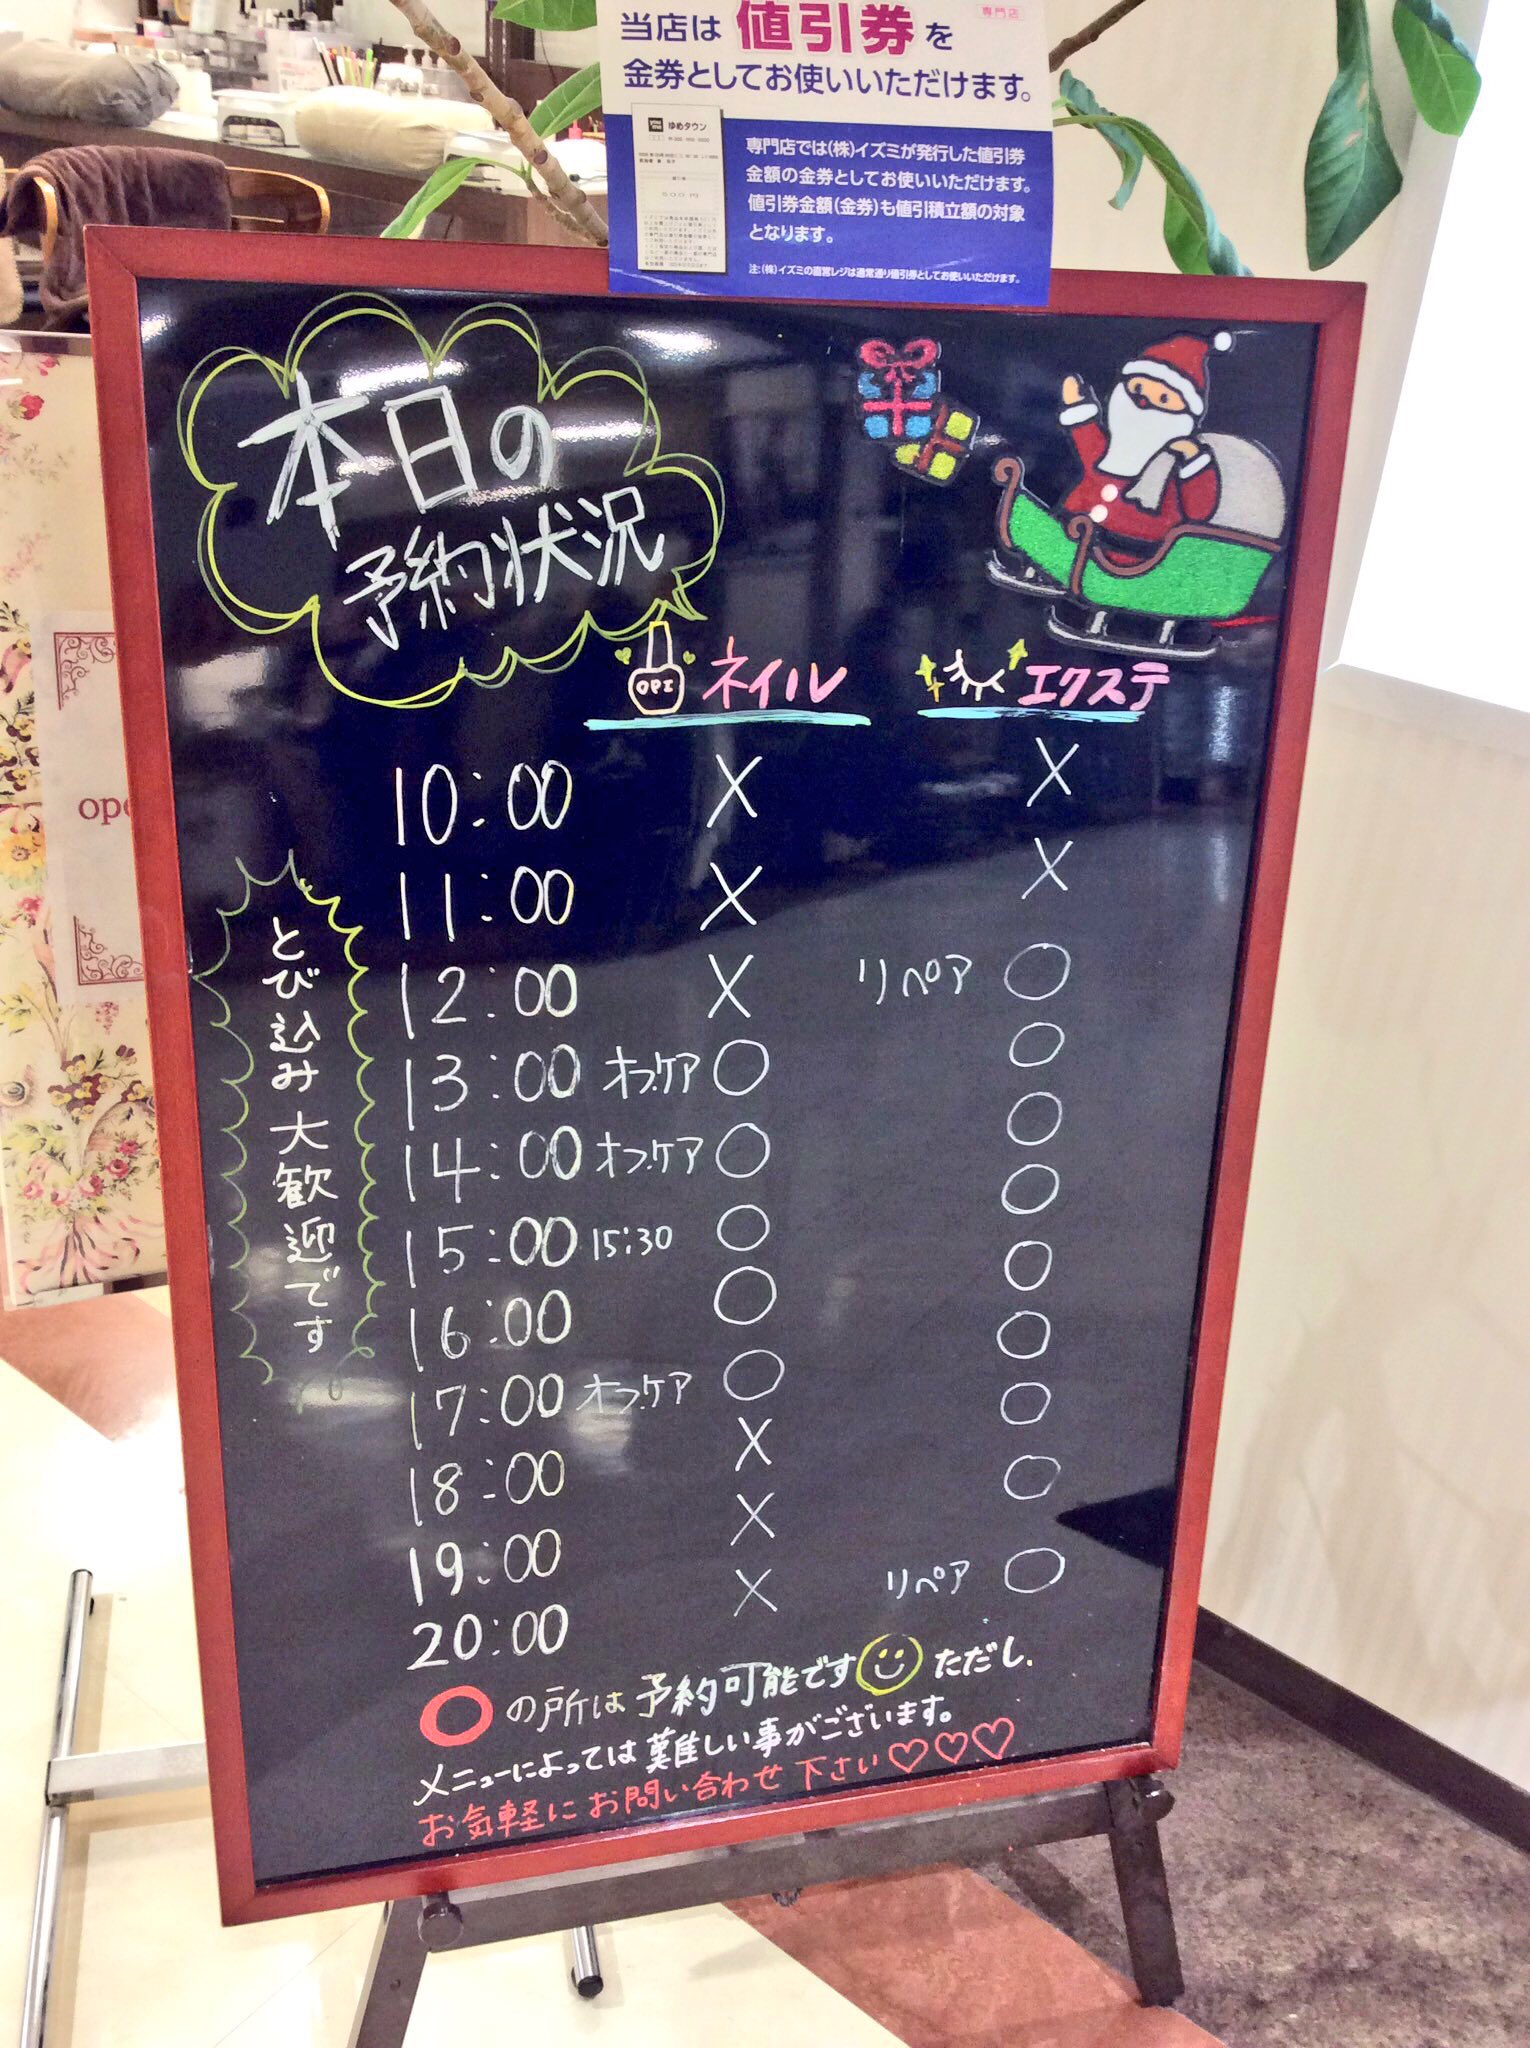 専門店
当店は値引券を
金券としてお使いいただけます。
ゆめタウン
専門店では(株)イズミが発行した値引券
金額の金券としてお使いいただけます。
値引券金額(金券)も値引積立額の対象
となります。
注:(株)イズミの直営レジは通常通り値引券としてお使いいただけます。
本日の
予約状況
OPI ネイル エクステ
10:00 X X
11:00 X X
12:00 X リペア ○
13:00 オフ.ケア ○ ○
14:00 オフ.ケア ○ ○
15:00 15:30 ○ ○
16:00 ○ ○
17:00 オフ.ケア ○ ○
18:00 X ○
19:00 X ○
20:00 X リペア ○
とび込み大歓迎です
○の所は予約可能です ただし、
メニューによっては難しい事がございます。
お気軽にお問い合わせ下さい♡♡♡
ope